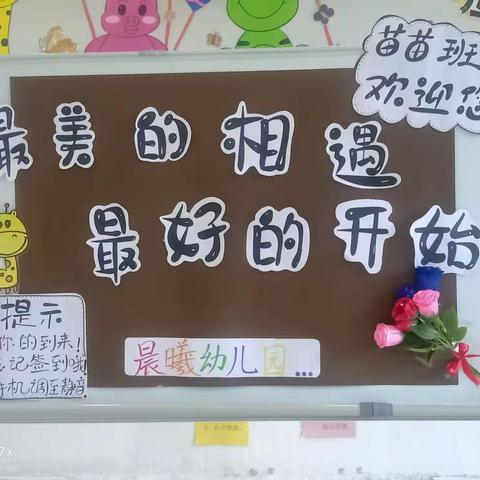 苗苗班
欢迎您
最美的相遇
最好的开始
提示
你的到来!
记签到哦
手机调至静音
晨曦幼儿园...